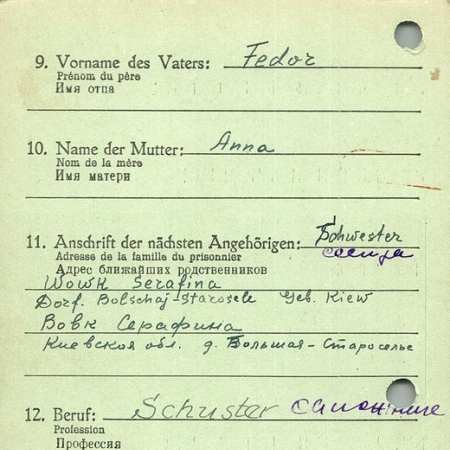 9. Vorname des Vaters: Fedor
Prénom du père
Имя отца
10. Name der Mutter: Anna
Nom de la mère
Имя матери
11. Anschrift der nächsten Angehörigen: Schwester
Adresse de la famille du prisonnier
Адрес ближайших родственников
Wowk Serafina
Dorf. Bolschaj-Starosele Geb. Kiew
Вовк Серафина
Киевская обл. д. Большая-Староселье
12. Beruf: Schuster сапожник
Profession
Профессия